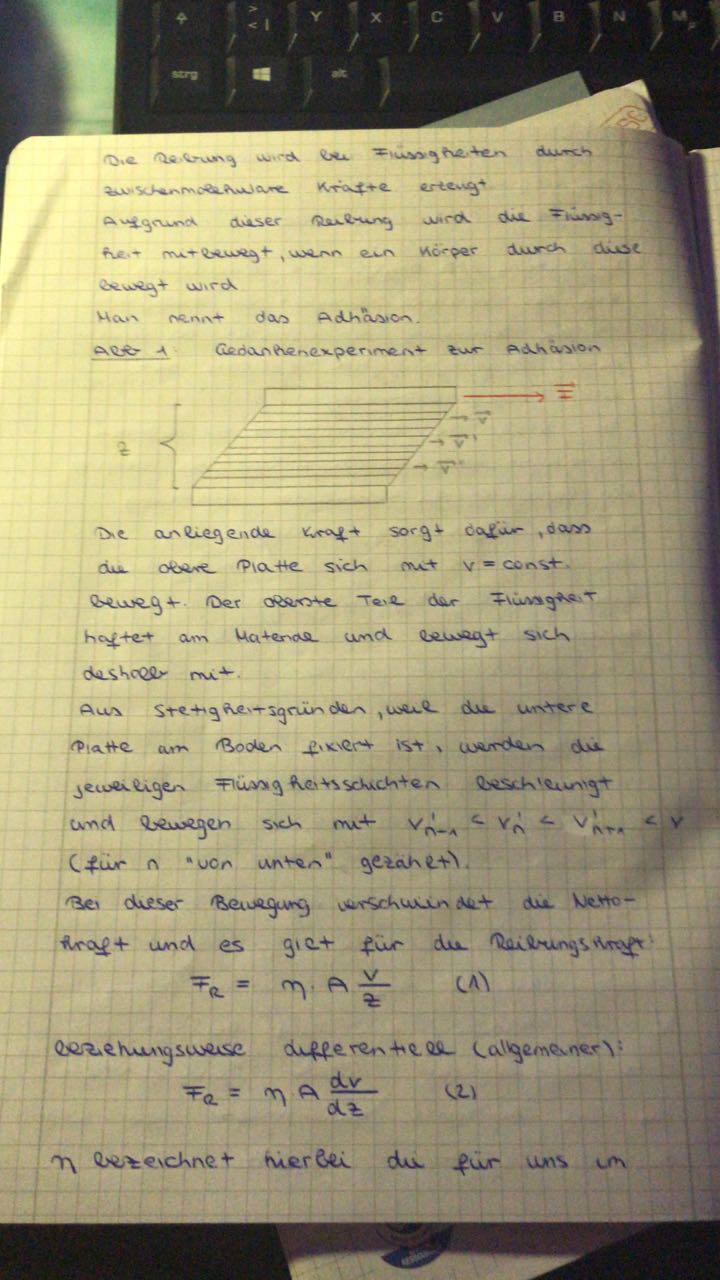 Y X C V B N M
strg alt
Die Reibung wird bei Flüssigkeiten durch
zwischenmolekulare Kräfte erzeugt
Aufgrund dieser Reibung wird die Flüssig-
keit mitbewegt, wenn ein Körper durch diese
bewegt wird
Man nennt das Adhäsion.
Abb 1: Gedankenexperiment zur Adhäsion
F
v
v'
z
v''
Die anliegende Kraft sorgt dafür, dass
die obere Platte sich mit v = const.
bewegt. Der oberste Teil der Flüssigkeit
haftet am Materide und bewegt sich
deshalb mit.
Aus Stetigkeitsgründen, weil die untere
Platte am Boden fixiert ist, werden die
jeweiligen Flüssigkeitsschichten beschleunigt
und bewegen sich mit v'ₙ₋₁ < v'ₙ < v'ₙ₊₁ < v
(für n "von unten" gezählt).
Bei dieser Bewegung verschwindet die Netto-
kraft und es gilt für die Reibungskraft:
F_R = η · A v/z (1)
beziehungsweise differentiell (allgemeiner):
F_R = η A dv/dz (2)
η bezeichnet hierbei die für uns im